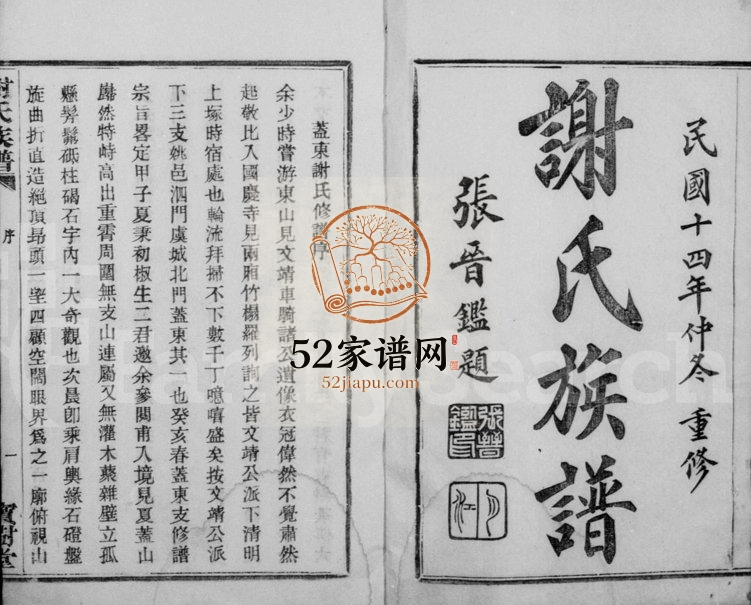 民國十四年仲冬 重修
謝氏族譜
張晉鑑題
張晉鑑印
蓋東謝氏修譜序
余少時嘗游東山見文靖車騎諸公遺像衣冠偉然不覺肅然
起敬比入國慶寺見兩廂竹榻羅列詢之皆文靖公派下清明
上塚時宿處也輪流拜掃不下數千丁噫嘻盛矣按文靖公派
下三支姚邑泗門虞城北門蓋東其一也癸亥春蓋東支修譜
宗旨畧定甲子夏秉初椒生二君邀余參閱甫入境見夏蓋山
巋然特峙高出重霄周圍無支山連屬又無灌木蘩雜壁立孤
懸髣髴砥柱碣石宇內一大奇觀也次晨卽乘肩輿緣石磴盤
旋曲折直造絕頂昻頭一望四顧空闊眼界爲之一廓俯視山
謝氏族譜
序
一
寶樹堂
52家谱网
52jiapu.com